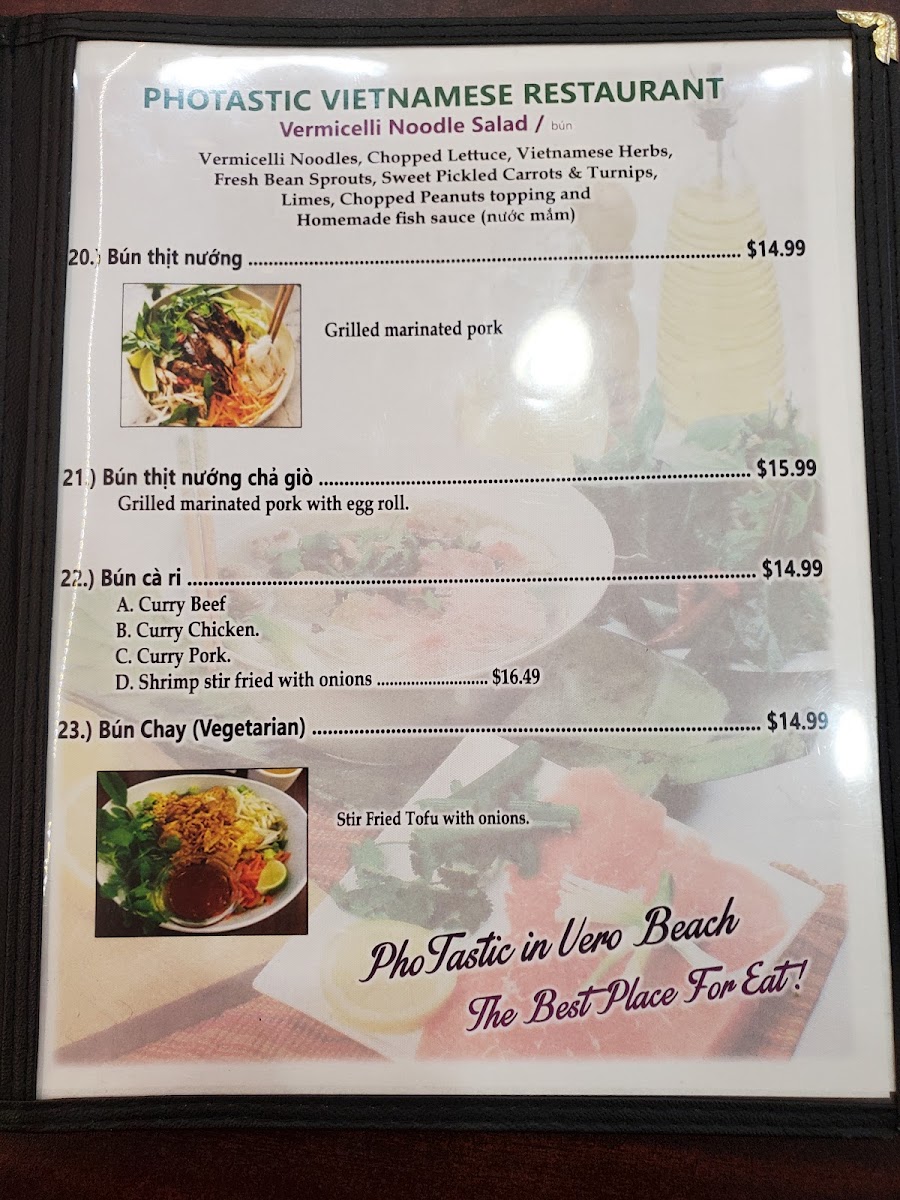 PHOTASTIC VIETNAMESE RESTAURANT
Vermicelli Noodle Salad / bún
Vermicelli Noodles, Chopped Lettuce, Vietnamese Herbs,
Fresh Bean Sprouts, Sweet Pickled Carrots & Turnips,
Limes, Chopped Peanuts topping and
Homemade fish sauce (nước mắm)
20.) Bún thịt nướng ........................................................ $14.99
Grilled marinated pork
21.) Bún thịt nướng chả giò ........................................................ $15.99
Grilled marinated pork with egg roll.
22.) Bún cà ri ........................................................ $14.99
A. Curry Beef
B. Curry Chicken.
C. Curry Pork.
D. Shrimp stir fried with onions .......................... $16.49
23.) Bún Chay (Vegetarian) ........................................................ $14.99
Stir Fried Tofu with onions.
PhoTastic in Vero Beach
The Best Place For Eat!